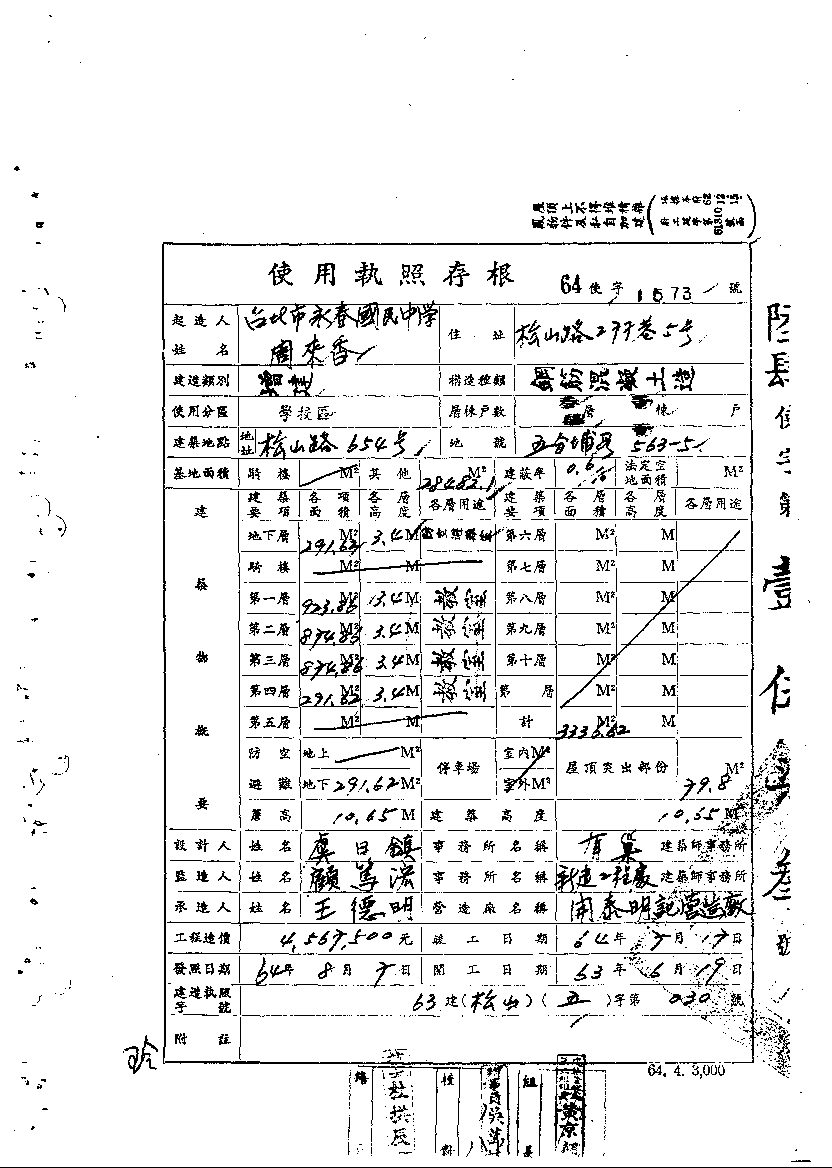 屋頂上不得堆積雜
亂物件及私自加建
使用執照存根
64使字1573號
起造人姓名 台北市永春國民中学 周來香 住址 松山路277巷5号
建造類別 增建 構造種類 鋼筋混凝土造
使用分區 學校區 層棟戶數 層 棟 戶
建築地點 地址 松山路654号 地號 五分埔 563-5
基地面積 騎樓 M² 其他 28482.1 M² 建蔽率 法定空地面積 M²
建築物概要
建築要項 各項面積 各層高度 各層用途 建築要項 各層面積 各層高度 各層用途
地下層 291.62 M² 3.4 M 第六層 M² M
騎樓 M² M 第七層 M² M
第一層 923.85 M² 3.4 M 教室 第八層 M² M
第二層 874.85 M² 3.4 M 教室 第九層 M² M
第三層 874.85 M² 3.4 M 教室 第十層 M² M
第四層 291.62 M² 3.4 M 教室 第 層 M² M
第五層 M² M 計 3336.62 M² M
防空避難 地上 M² 地下 291.62 M² 停車場 室內 M² 室外 M² 屋頂突出部份 79.8 M²
簷高 10.65 M 建築高度 10.55 M
設計人 姓名 虞日鎮 事務所名稱 有巢 建築師事務所
監造人 姓名 顧篤 事務所名稱 建築師事務所
承造人 姓名 王德明 營造廠名稱 開泰明記營造廠
工程造價 4,567,500元 竣工日期 64年7月17日
發照日期 64年8月7日 開工日期 63年6月19日
建造執照字號 63建(松山)(五)字第030號
附註
64. 4. 3,000